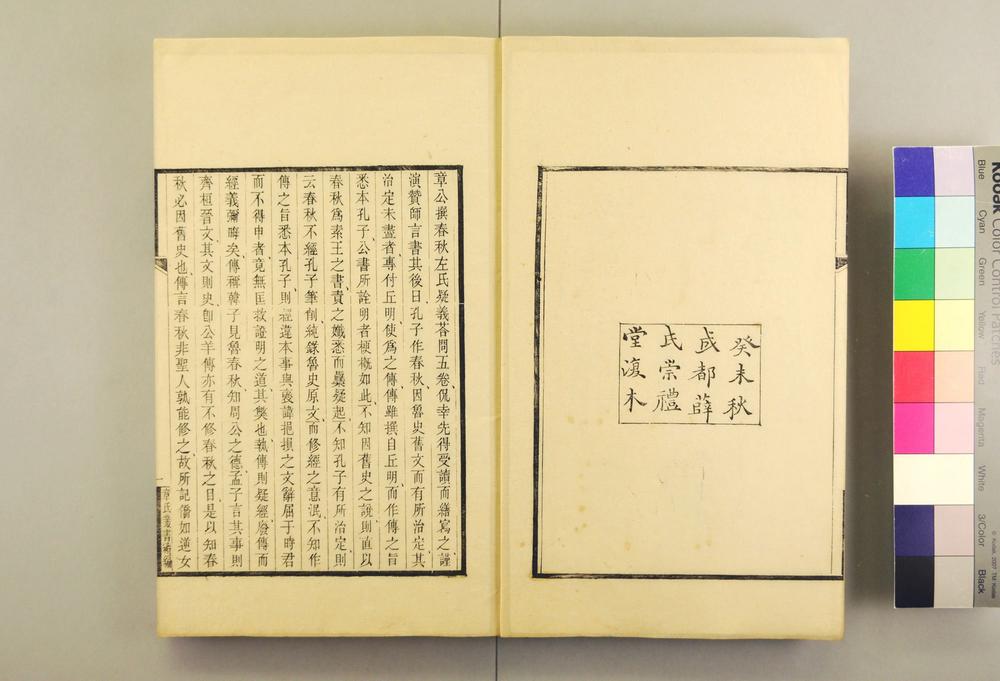 癸未秋
成都薛
氏崇禮
堂復木
章公撰春秋左氏疑義荅問五卷侃幸先得受讀而繕寫之謹
演贊師言書其後曰孔子作春秋因魯史舊文而有所治定其
治定未盡者專付丘明使爲之傳傳雖撰自丘明而作傳之旨
悉本孔子公書所詮明者梗概如此不知因舊史之說則直以
春秋爲素王之書責之孅悉而釁疑起不知孔子有所治定則
云春秋不經孔子筆削純錄魯史原文而修經之意泯不知作
傳之旨悉本孔子則經違本事與襃諱挹損之文辭屈于時君
而不得申者竟無匡救證明之道其獘也執傳則疑經廢傳而
經義彌晦矣傳稱韓子見魯春秋知周公之德孟子言其事則
齊桓晉文其文則史卽公羊傳亦有不修春秋之目是以知春
秋必因舊史也傳言春秋非聖人孰能修之故所記僑如道女
章氏叢書續編
Kodak Color Control Patches
Blue
Cyan
Green
Yellow
Red
Magenta
White
3/Color
Black
© Kodak, 2007 TM: Kodak